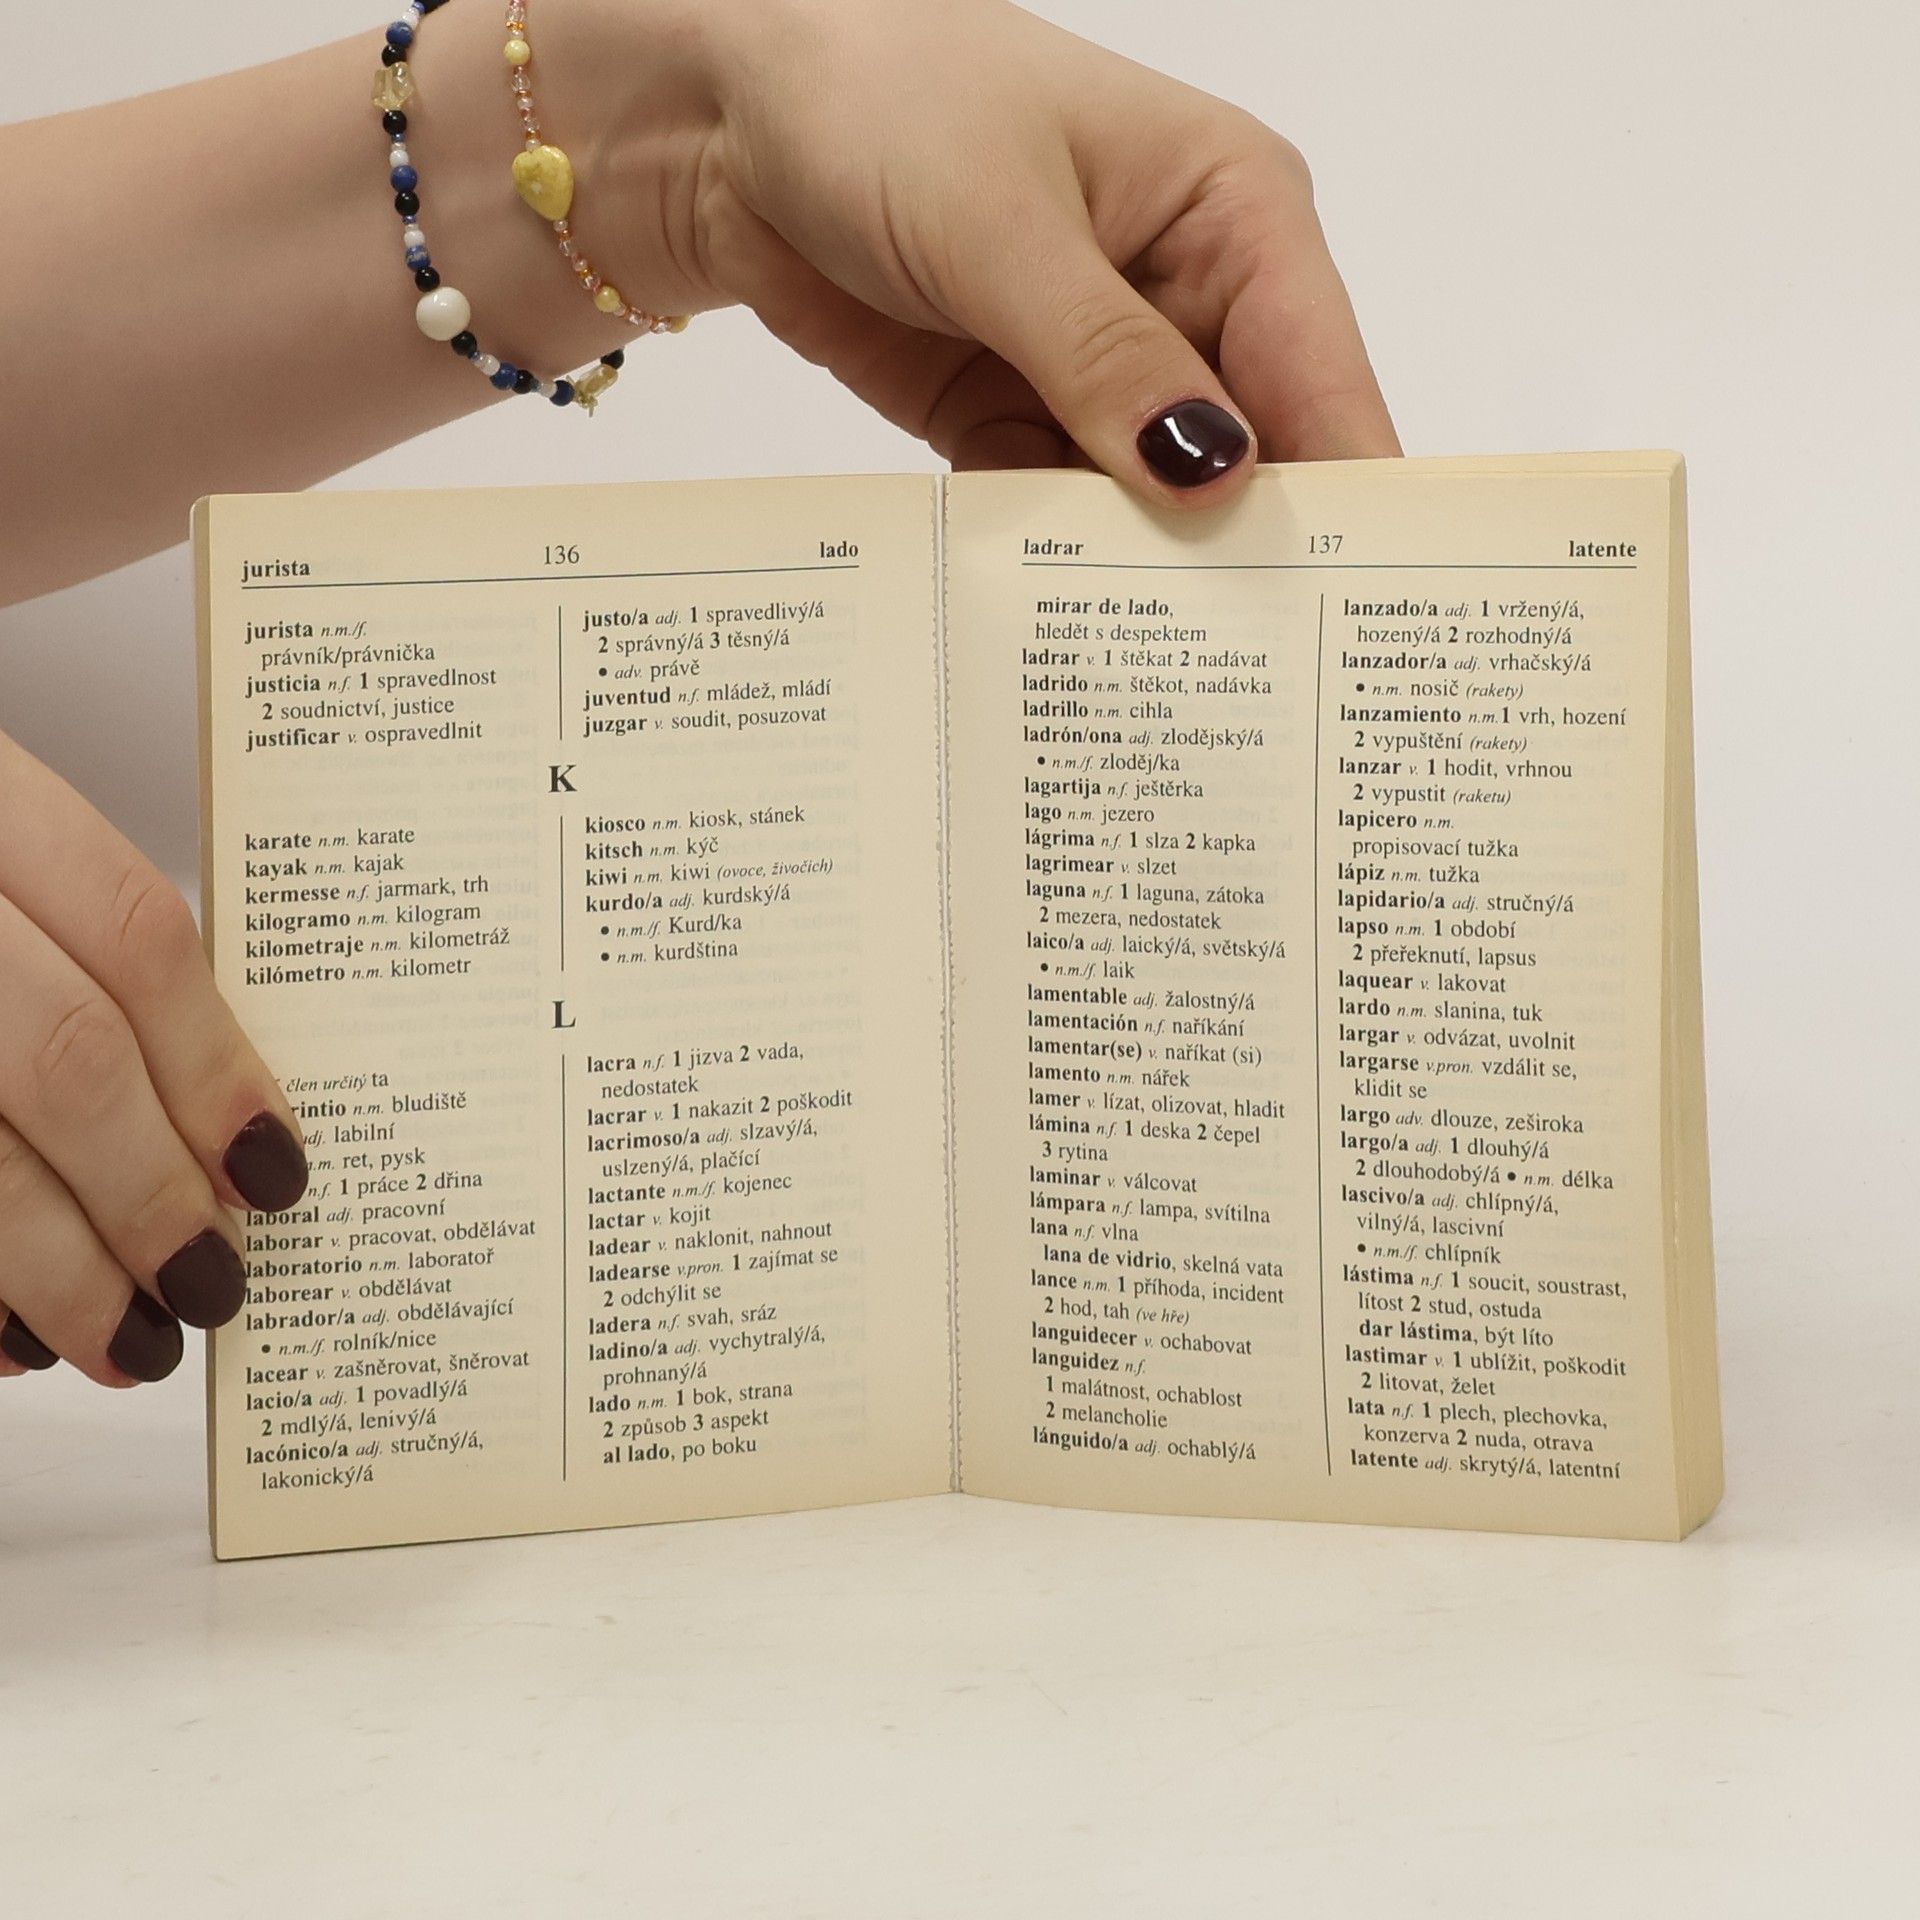 jurista 136 lado
jurista n.m./f.
právník/právnička
justicia n.f. 1 spravedlnost
2 soudnictví, justice
justificar v. ospravedlnit
justo/a adj. 1 spravedlivý/á
2 správný/á 3 těsný/á
• adv. právě
juventud n.f. mládež, mládí
juzgar v. soudit, posuzovat
K
karate n.m. karate
kayak n.m. kajak
kermesse n.f. jarmark, trh
kilogramo n.m. kilogram
kilometraje n.m. kilometráž
kilómetro n.m. kilometr
kiosco n.m. kiosk, stánek
kitsch n.m. kýč
kiwi n.m. kiwi (ovoce, živočich)
kurdo/a adj. kurdský/á
• n.m./f. Kurd/ka
• n.m. kurdština
L
člen určitý ta
rintio n.m. bludiště
adj. labilní
n.m. ret, pysk
n.f. 1 práce 2 dřina
laboral adj. pracovní
laborar v. pracovat, obdělávat
laboratorio n.m. laboratoř
laborear v. obdělávat
labrador/a adj. obdělávající
• n.m./f. rolník/nice
lacear v. zašněrovat, šněrovat
lacio/a adj. 1 povadlý/á
2 mdlý/á, lenivý/á
lacónico/a adj. stručný/á,
lakonický/á
lacra n.f. 1 jizva 2 vada,
nedostatek
lacrar v. 1 nakazit 2 poškodit
lacrimoso/a adj. slzavý/á,
uslzený/á, plačící
lactante n.m./f. kojenec
lactar v. kojit
ladear v. naklonit, nahnout
ladearse v.pron. 1 zajímat se
2 odchýlit se
ladera n.f. svah, sráz
ladino/a adj. vychytralý/á,
prohnaný/á
lado n.m. 1 bok, strana
2 způsob 3 aspekt
al lado, po boku
ladrar 137 latente
mirar de lado,
hledět s despektem
ladrar v. 1 štěkat 2 nadávat
ladrido n.m. štěkot, nadávka
ladrillo n.m. cihla
ladrón/ona adj. zlodějský/á
• n.m./f. zloděj/ka
lagartija n.f. ještěrka
lago n.m. jezero
lágrima n.f. 1 slza 2 kapka
lagrimear v. slzet
laguna n.f. 1 laguna, zátoka
2 mezera, nedostatek
laico/a adj. laický/á, světský/á
• n.m./f. laik
lamentable adj. žalostný/á
lamentación n.f. naříkání
lamentar(se) v. naříkat (si)
lamento n.m. nářek
lamer v. lízat, olizovat, hladit
lámina n.f. 1 deska 2 čepel
3 rytina
laminar v. válcovat
lámpara n.f. lampa, svítilna
lana n.f. vlna
lana de vidrio, skelná vata
lance n.m. 1 příhoda, incident
2 hod, tah (ve hře)
languidecer v. ochabovat
languidez n.f.
1 malátnost, ochablost
2 melancholie
lánguido/a adj. ochablý/á
lanzado/a adj. 1 vržený/á,
hozený/á 2 rozhodný/á
lanzador/a adj. vrhačský/á
• n.m. nosič (rakety)
lanzamiento n.m.1 vrh, hození
2 vypuštění (rakety)
lanzar v. 1 hodit, vrhnou
2 vypustit (raketu)
lapicero n.m.
propisovací tužka
lápiz n.m. tužka
lapidario/a adj. stručný/á
lapso n.m. 1 období
2 přeřeknutí, lapsus
laquear v. lakovat
lardo n.m. slanina, tuk
largar v. odvázat, uvolnit
largarse v.pron. vzdálit se,
klidit se
largo adv. dlouze, zeširoka
largo/a adj. 1 dlouhý/á
2 dlouhodobý/á • n.m. délka
lascivo/a adj. chlípný/á,
vilný/á, lascivní
• n.m./f. chlípník
lástima n.f. 1 soucit, soustrast,
lítost 2 stud, ostuda
dar lástima, být líto
lastimar v. 1 ublížit, poškodit
2 litovat, želet
lata n.f. 1 plech, plechovka,
konzerva 2 nuda, otrava
latente adj. skrytý/á, latentní